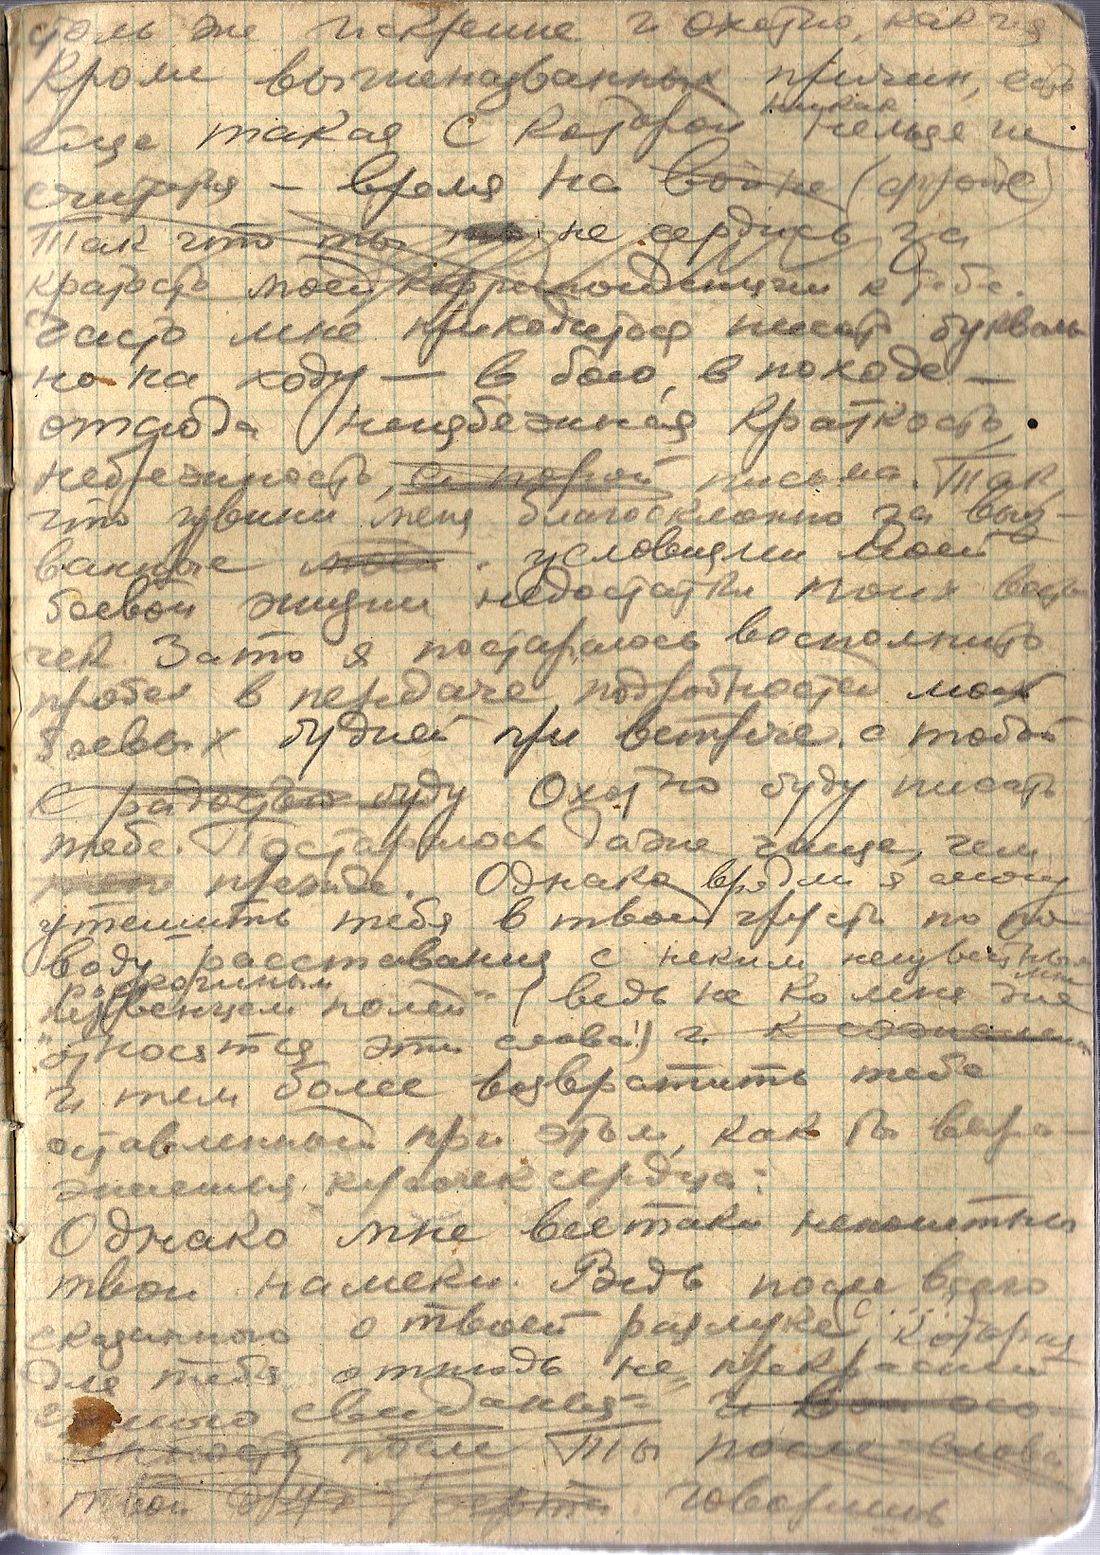 столь же искренне и охотно, как и я
Кроме вышеназванных причин, есть
еще такая с которой никак нельзя не
считаться — время на войне (фронте)
Так что ты не сердись за
краткость моей корреспонденции к тебе.
Часто мне приходится писать букваль
но на ходу — в бою, в походе —
отсюда неизбежная краткость,
небрежность, а порой письма. Так
что извини меня благосклонно за выз-
ванные условиями моей
боевой жизни недостатки моих весто
чек. Зато я постараюсь восполнить
пробел в передаче подробностей моих
боевых будней при встрече с тобой
С радостью буду Охотно буду писать
тебе. Постараюсь даже чаще, чем
прежде. Однако врядли я смогу
утешить тебя в твоей грусти по по-
воду расставания с неким неизвестным мне
"первенцем полей" (ведь не ко мне же
относятся эти слова!) и
и тем более возвратить тебе
оставленный при этом, как ты выра-
жаешься "кусочек сердца".
Однако мне все таки непонятны
твои намеки. Ведь после всего
сказанного о твоей разлуке (с ...), которая
для тебя отнюдь не "прекрасней
самого свиданья" и
после Ты после слова
твой говоришь